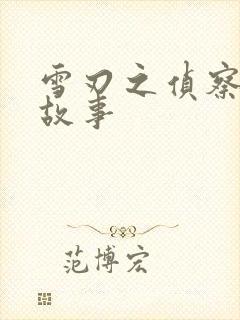 雪刃之偵察
故事
范博宏